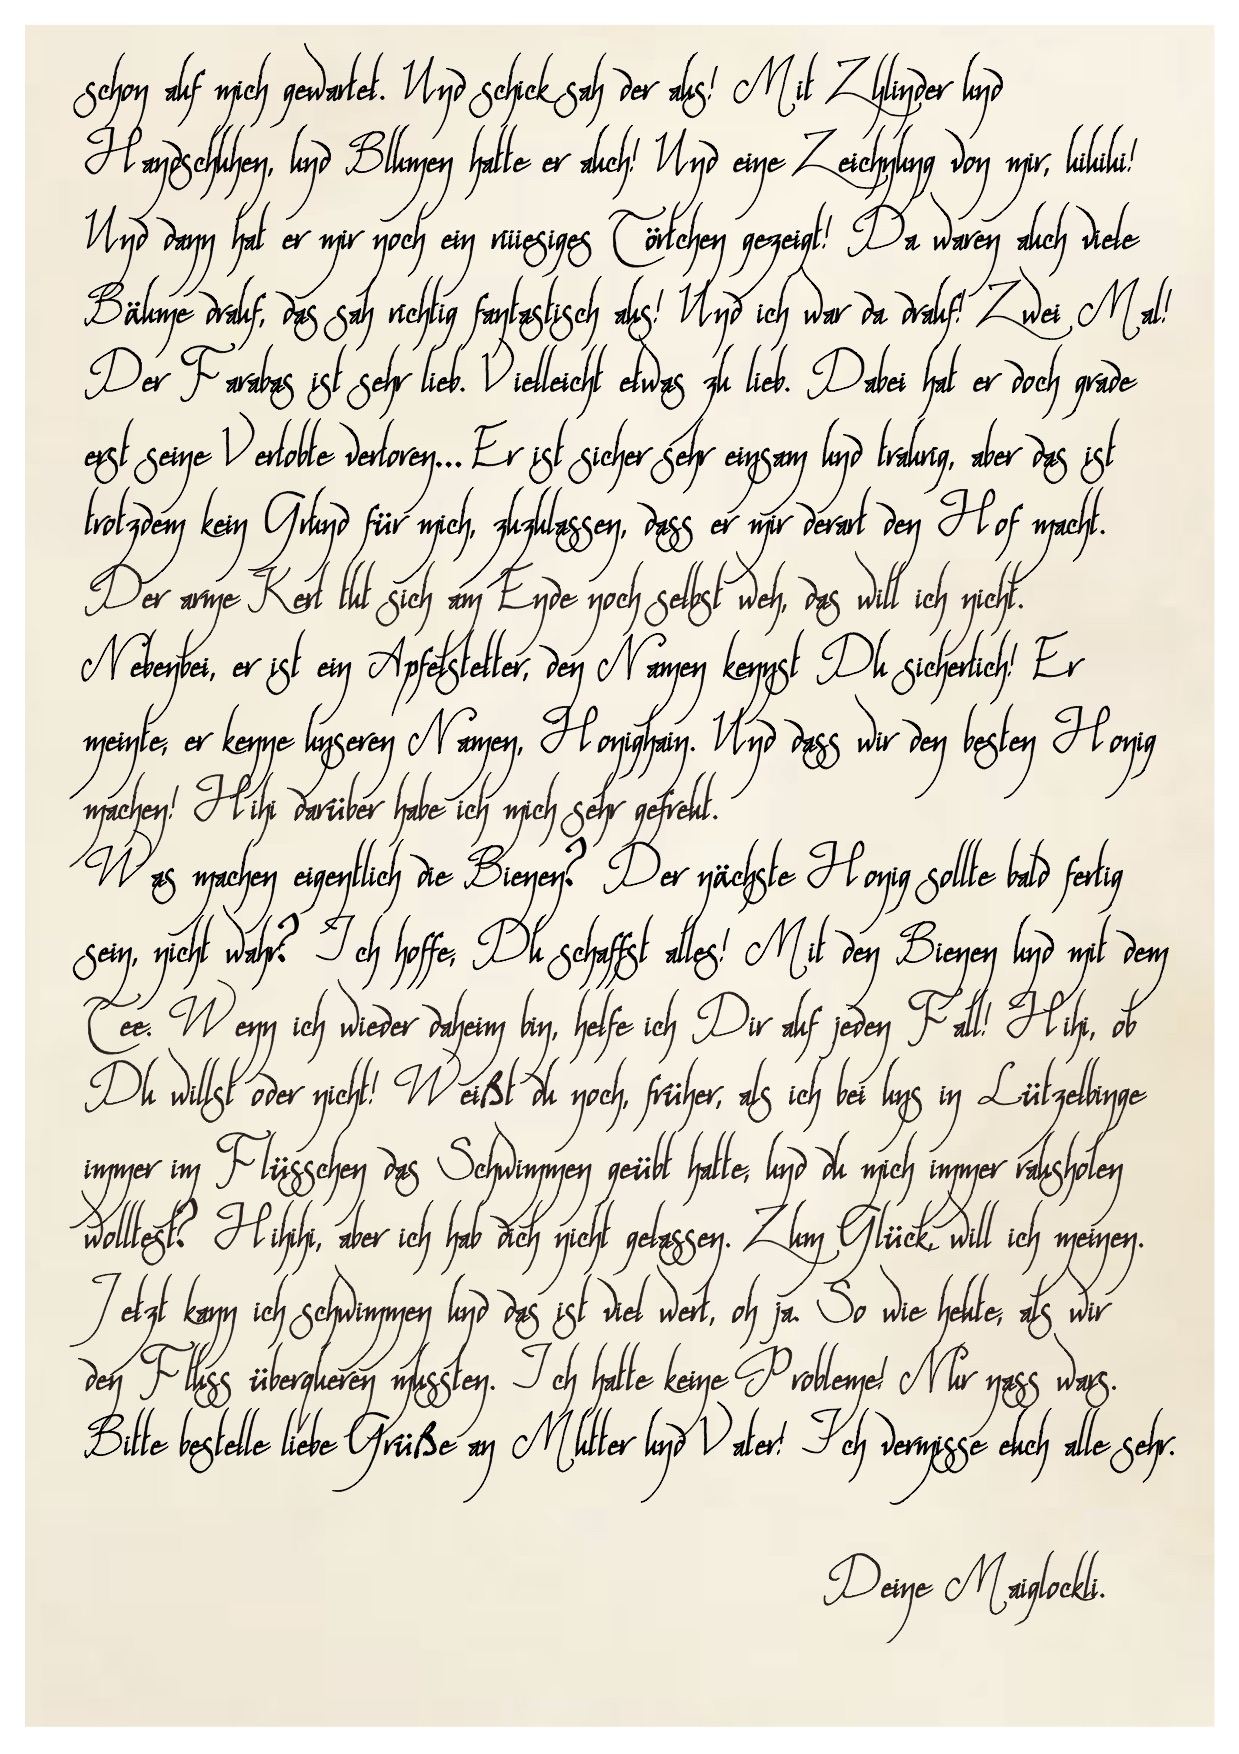 schon auf mich gewartet. Und schick sah der aus! Mit Zylinder und
Handschuhen, und Bllumen hatte er auch! Und eine Zeichnung von mir, hihihi!
Und dann hat er mir noch ein riiiesiges Törtchen gezeigt! Da waren auch viele
Bäume drauf, das sah richtig fantastisch aus! Und ich war da drauf! Zwei Mal!
Der Farabas ist sehr lieb. Vielleicht etwas zu lieb. Dabei hat er doch grade
erst seine Verlobte verloren... Er ist sicher sehr einsam und traurig, aber das ist
trotzdem kein Grund für mich, zuzulassen, dass er mir derart den Hof macht.
Der arme Kerl tut sich am Ende noch selbst weh, das will ich nicht.
Nebenbei, er ist ein Apfelstetter, den Namen kennst Du sicherlich! Er
meinte, er kenne unseren Namen, Honighain. Und dass wir den besten Honig
machen! Hihi darüber habe ich mich sehr gefreut.
Was machen eigentlich die Bienen? Der nächste Honig sollte bald fertig
sein, nicht wahr? Ich hoffe, Du schaffst alles! Mit den Bienen und mit dem
Tee. Wenn ich wieder daheim bin, helfe ich Dir auf jeden Fall! Hihi, ob
Du willst oder nicht! Weißt du noch, früher, als ich bei uns in Lützelbinge
immer im Flüsschen das Schwimmen geübt hatte, und du mich immer rausholen
wolltest? Hihihi, aber ich hab dich nicht gelassen. Zum Glück, will ich meinen.
Jetzt kann ich schwimmen und das ist viel wert, oh ja. So wie heute, als wir
den Fluss überqueren mussten. Ich hatte keine Probleme! Nur nass wars.
Bitte bestelle liebe Grüße an Mutter und Vater! Ich vermisse euch alle sehr.
Deine Maiglöckli.